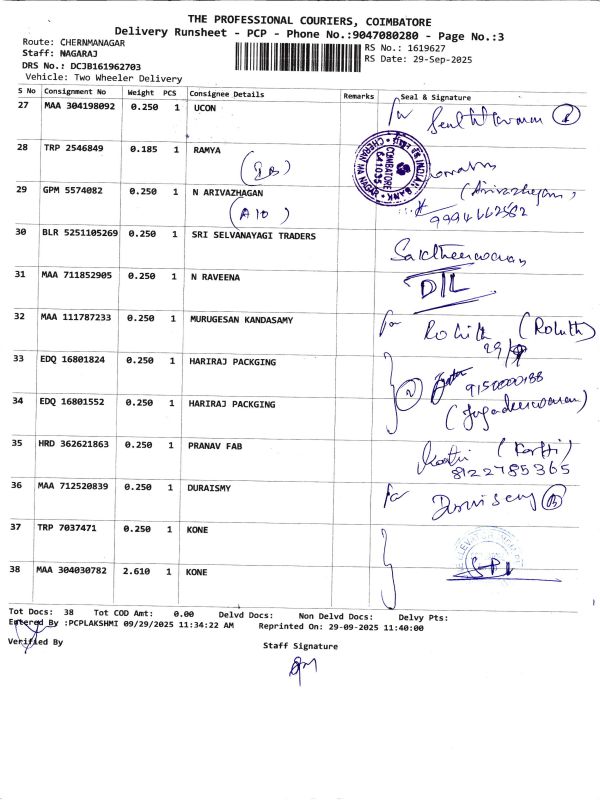 THE PROFESSIONAL COURIERS, COIMBATORE
Delivery Runsheet - PCP - Phone No.:9047080280 - Page No.:3
Route: CHERNMANAGAR RS No.: 1619627
Staff: NAGARAJ RS Date: 29-Sep-2025
DRS No.: DCJB161962703
Vehicle: Two Wheeler Delivery
S No Consignment No Weight PCS Consignee Details Remarks Seal & Signature
27 MAA 304198092 0.250 1 UCON for
28 TRP 2546849 0.185 1 RAMYA
INDIAN BANK
COIMBATORE
29 GPM 5574082 0.250 1 N ARIVAZHAGAN (Arivazhagan)
(A10) 9994662582
30 BLR 5251105269 0.250 1 SRI SELVANAYAGI TRADERS
31 MAA 711852905 0.250 1 N RAVEENA DTL
32 MAA 111787233 0.250 1 MURUGESAN KANDASAMY for Rohith (Rohith)
29/9
33 EDQ 16801824 0.250 1 HARIRAJ PACKGING
34 EDQ 16801552 0.250 1 HARIRAJ PACKGING
35 HRD 362621863 0.250 1 PRANAV FAB
8122785365
36 MAA 712520839 0.250 1 DURAISMY for
37 TRP 7037471 0.250 1 KONE
38 MAA 304030782 2.610 1 KONE
Tot Docs: 38 Tot COD Amt: 0.00 Delvd Docs: Non Delvd Docs: Delvy Pts:
Entered By :PCPLAKSHMI 09/29/2025 11:34:22 AM Reprinted On: 29-09-2025 11:40:00
Verified By Staff Signature